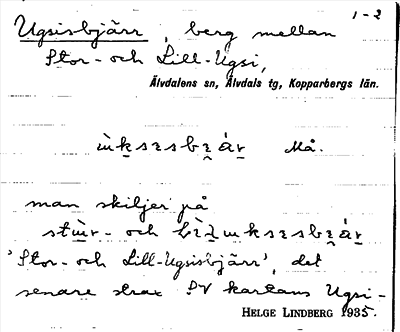 1-2
Ugsisbjärr, berg mellan
Stor- och Lill-Ugsi,
Älvdalens sn, Älvdals tg, Kopparbergs län.
Må.
man skiljer på
- och
'Stor- och Lill-Ugsisbjärr', det
senare strax SV kartans Ugsi-
HELGE LINDBERG 1935.